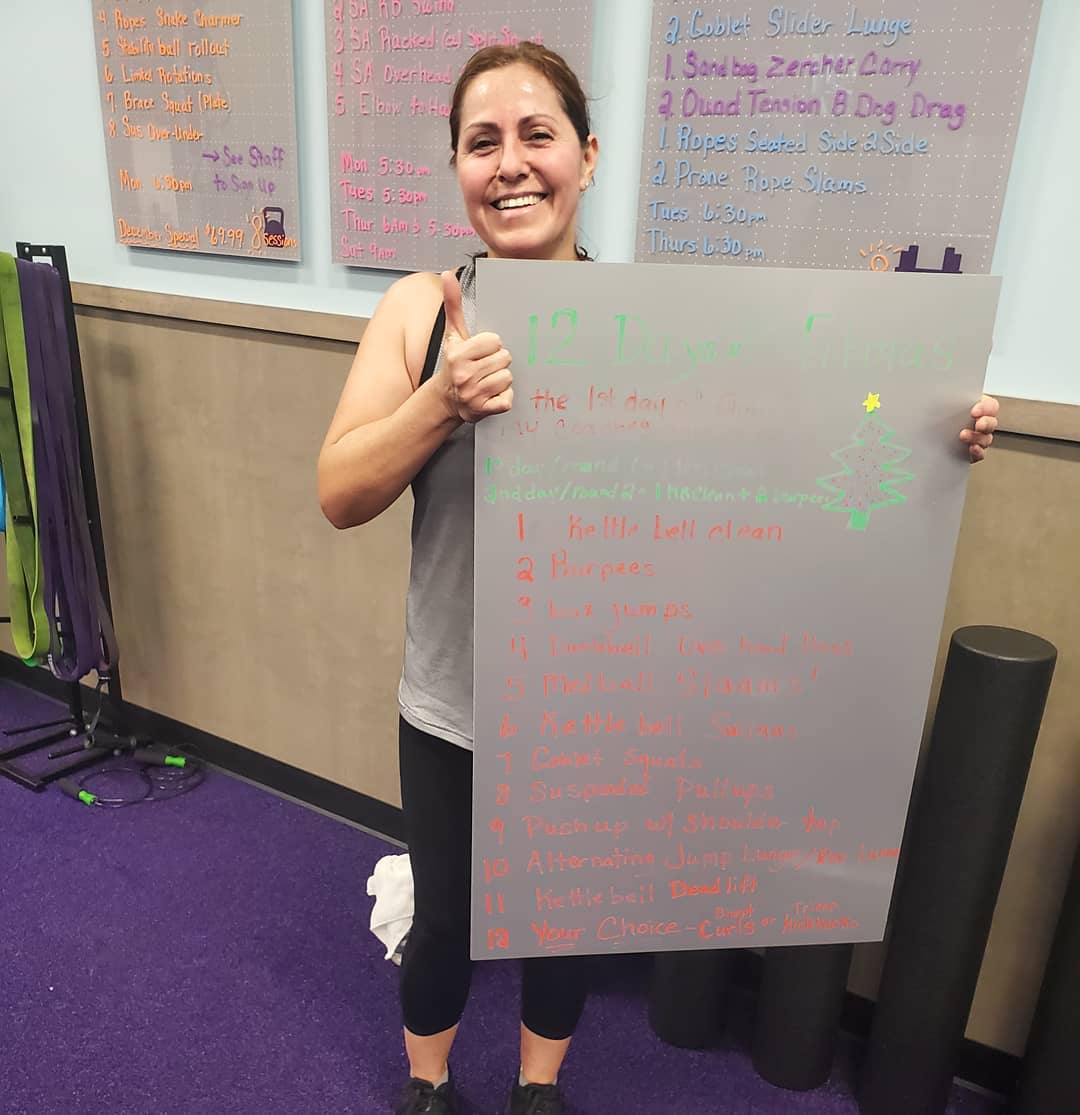 4. Ropes Snake Charmer
5. Stability ball rollout
6. Limited Rotations
7. Brace Squat (Plate)
8. Sus Over-Under
→ See Staff
to Sign Up
Mon 6:30pm
December Special $69.99 8 Sessions
2 SA KB Swing
3 SA Racked
4 SA Overhead
5. Elbow to
Mon 5:30am
Tues 5:30pm
Thur 6AM & 5:30pm
Sat 9am
2. Goblet Slider Lunge
1. Sandbag Zercher Carry
2. Quad Tension B.Dog Drag
1. Ropes Seated Side 2 Side
2 Prone Rope Slams
Tues 6:30pm
Thurs 6:30pm
12 Days Fitmas
the 1st day
day/round
2nd day/round 2 = 1 KBClean + 2 burpees
1 Kettle bell clean
2 Burpees
3 box jumps
4 Dumbbell Over head Press
5 Medball Slaams!
6 Kettle bell Swings
7 Goblet Squats
8 Suspended Pullups
9 Push up w/ Shoulder tap
10 Alternating Jump Lunges/
11 Kettlebell Deadlift
12 Your Choice - Bicep Curls or Tricep